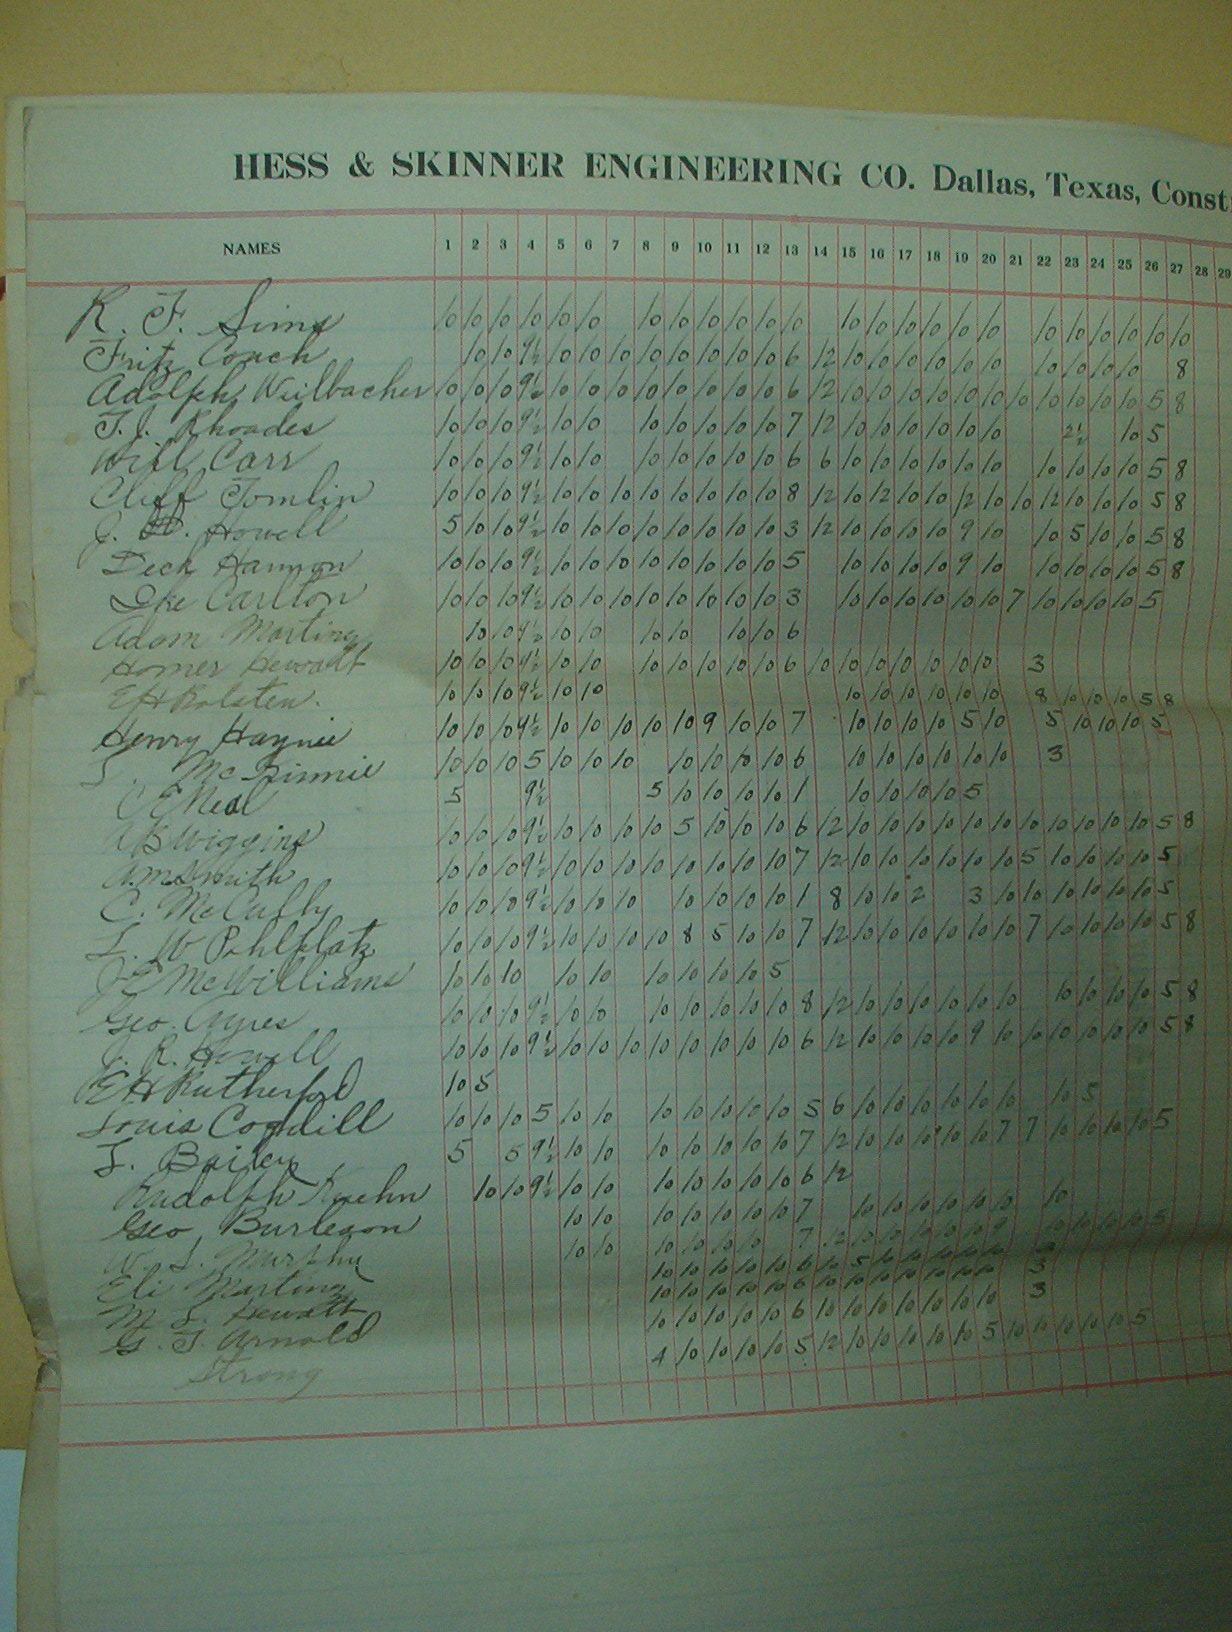 HESS & SKINNER ENGINEERING CO. Dallas, Texas, Const
NAMES 1 2 3 4 5 6 7 8 9 10 11 12 13 14 15 16 17 18 19 20 21 22 23 24 25 26 27 28 29
R. F. Sims 10 10 10 10 10 10 10 10 10 10 10 10 10 10 10 10 10 10 10 10 10 10 10 10
Fritz Coach 10 10 9½ 10 10 10 10 10 10 10 10 6 12 10 10 10 10 10 10 10 10 10 10 8
Adolph Weilbacher 10 10 10 9½ 10 10 10 10 10 10 10 10 6 12 10 10 10 10 10 10 10 10 10 10 10 5 8
T. J. Rhoades 10 10 10 9½ 10 10 10 10 10 10 10 7 12 10 10 10 10 10 10 2½ 10 5
Will Carr 10 10 10 9½ 10 10 10 10 10 10 10 6 6 10 10 10 10 10 10 10 10 10 10 5 8
Cliff Tomlin 10 10 10 9½ 10 10 10 10 10 10 10 10 8 12 10 12 10 10 12 10 10 12 10 10 10 5 8
J. Howell 5 10 10 9½ 10 10 10 10 10 10 10 10 3 12 10 10 10 10 9 10 10 5 10 10 5 8
Deck Hannon 10 10 10 9½ 10 10 10 10 10 10 10 10 5 10 10 10 10 9 10 10 10 10 10 5 8
Ike Carlton 10 10 10 9½ 10 10 10 10 10 10 10 10 3 10 10 10 10 10 10 7 10 10 10 10 5
Adam Marting 10 10 9½ 10 10 10 10 10 10 6
Homer Hewatt 10 10 10 9½ 10 10 10 10 10 10 10 6 10 10 10 10 10 10 10 3
E H Rolsten. 10 10 10 9½ 10 10 10 10 10 10 10 10 8 10 10 10 5 8
Henry Haynie 10 10 10 9½ 10 10 10 10 10 9 10 10 7 10 10 10 10 5 10 5 10 10 10 5
Mc Ginnie 10 10 10 5 10 10 10 10 10 10 10 6 10 10 10 10 10 10 3
C E Neal 5 9½ 5 10 10 10 10 1 10 10 10 10 5
Wiggins 10 10 10 9½ 10 10 10 10 5 10 10 10 6 12 10 10 10 10 10 10 10 10 10 10 10 5 8
A. M Smith 10 10 10 9½ 10 10 10 10 10 10 10 10 7 12 10 10 10 10 10 10 5 10 10 10 10 5
C. McCully 10 10 10 9½ 10 10 10 10 10 10 10 1 8 10 10 2 3 10 10 10 10 10 10 5
L. W Pohlplatz 10 10 10 9½ 10 10 10 10 8 5 10 10 7 12 10 10 10 10 10 10 7 10 10 10 10 5 8
J E McWilliams 10 10 10 10 10 10 10 10 10 5
Geo. Ayres 10 10 10 9½ 10 10 10 10 10 10 10 8 12 10 10 10 10 10 10 10 10 10 10 5 8
J. R. Howell 10 10 10 9½ 10 10 10 10 10 10 10 10 6 12 10 10 10 10 9 10 10 10 10 10 10 5 8
E H Rutherford 10 5
Louis Cordill 10 10 10 5 10 10 10 10 10 10 10 5 6 10 10 10 10 10 10 10 5
Bailey 5 5 9½ 10 10 10 10 10 10 10 7 12 10 10 10 10 10 7 7 10 10 10 10 5
Rudolph Kuehn 10 10 9½ 10 10 10 10 10 10 10 6 12
Geo. Burleson 10 10 10 10 10 10 10 7 10 10 10 10 10 10 10
Murphy 10 10 10 10 10 10 7 12 10 10 10 10 10 9 10 10 10 10 5
Eli Marting 10 10 10 10 10 6 10 5 10 10 10 10 10 3
M. L. Hewatt 10 10 10 10 10 6 10 10 10 10 10 10 10 3
G. T. Arnold 10 10 10 10 10 6 10 10 10 10 10 10 10
Strong 4 10 10 10 10 5 12 10 10 10 10 10 5 10 10 10 10 10 5